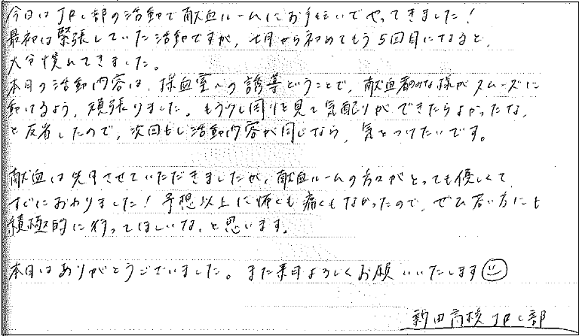 今日はJRC部の活動で献血ルームにお手伝いでやってきました！
最初は緊張していた活動ですが、七月から初めてもう5回目になると、
大分慣れてきました。
本日の活動内容は、採血室への誘導ということで、献血者のみな様がスムーズに
動けるよう、頑張りました。もう少し周りを見て気配りができたらよかったな、
と反省したので、次回もし活動内容が同じなら、気をつけたいです。
献血は先月させていただきましたが、献血ルームの方々がとっても優しくて
すぐにおわりました！予想以上に怖くも痛くもなかったので、ぜひ若い方にも
積極的に行ってほしいな、と思います。
本日はありがとうございました。また来月よろしくお願いいたします
新田高校 JRC部